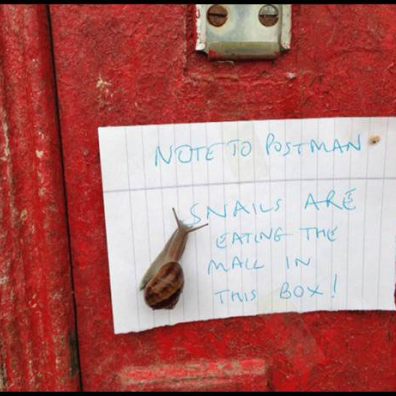 NOTE TO POSTMAN
SNAILS ARE
EATING THE
MAIL IN
THIS BOX!